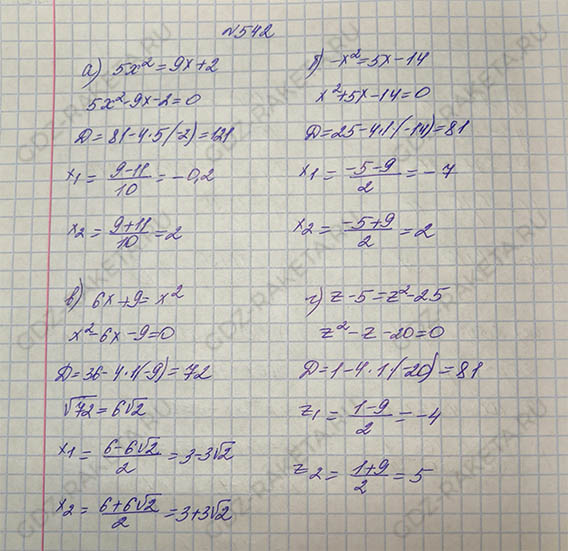 №542
а) 5x² = 9x + 2
5x² - 9x - 2 = 0
D = 81 - 4·5·(-2) = 121
x₁ = (9-11)/10 = -0,2
x₂ = (9+11)/10 = 2
б) -x² = 5x - 14
x² + 5x - 14 = 0
D = 25 - 4·1·(-14) = 81
x₁ = (-5-9)/2 = -7
x₂ = (-5+9)/2 = 2
в) 6x + 9 = x²
x² - 6x - 9 = 0
D = 36 - 4·1·(-9) = 72
√72 = 6√2
x₁ = (6-6√2)/2 = 3-3√2
x₂ = (6+6√2)/2 = 3+3√2
г) z - 5 = z² - 25
z² - z - 20 = 0
D = 1 - 4·1·(-20) = 81
z₁ = (1-9)/2 = -4
z₂ = (1+9)/2 = 5
GDZ-RAKETA.RU